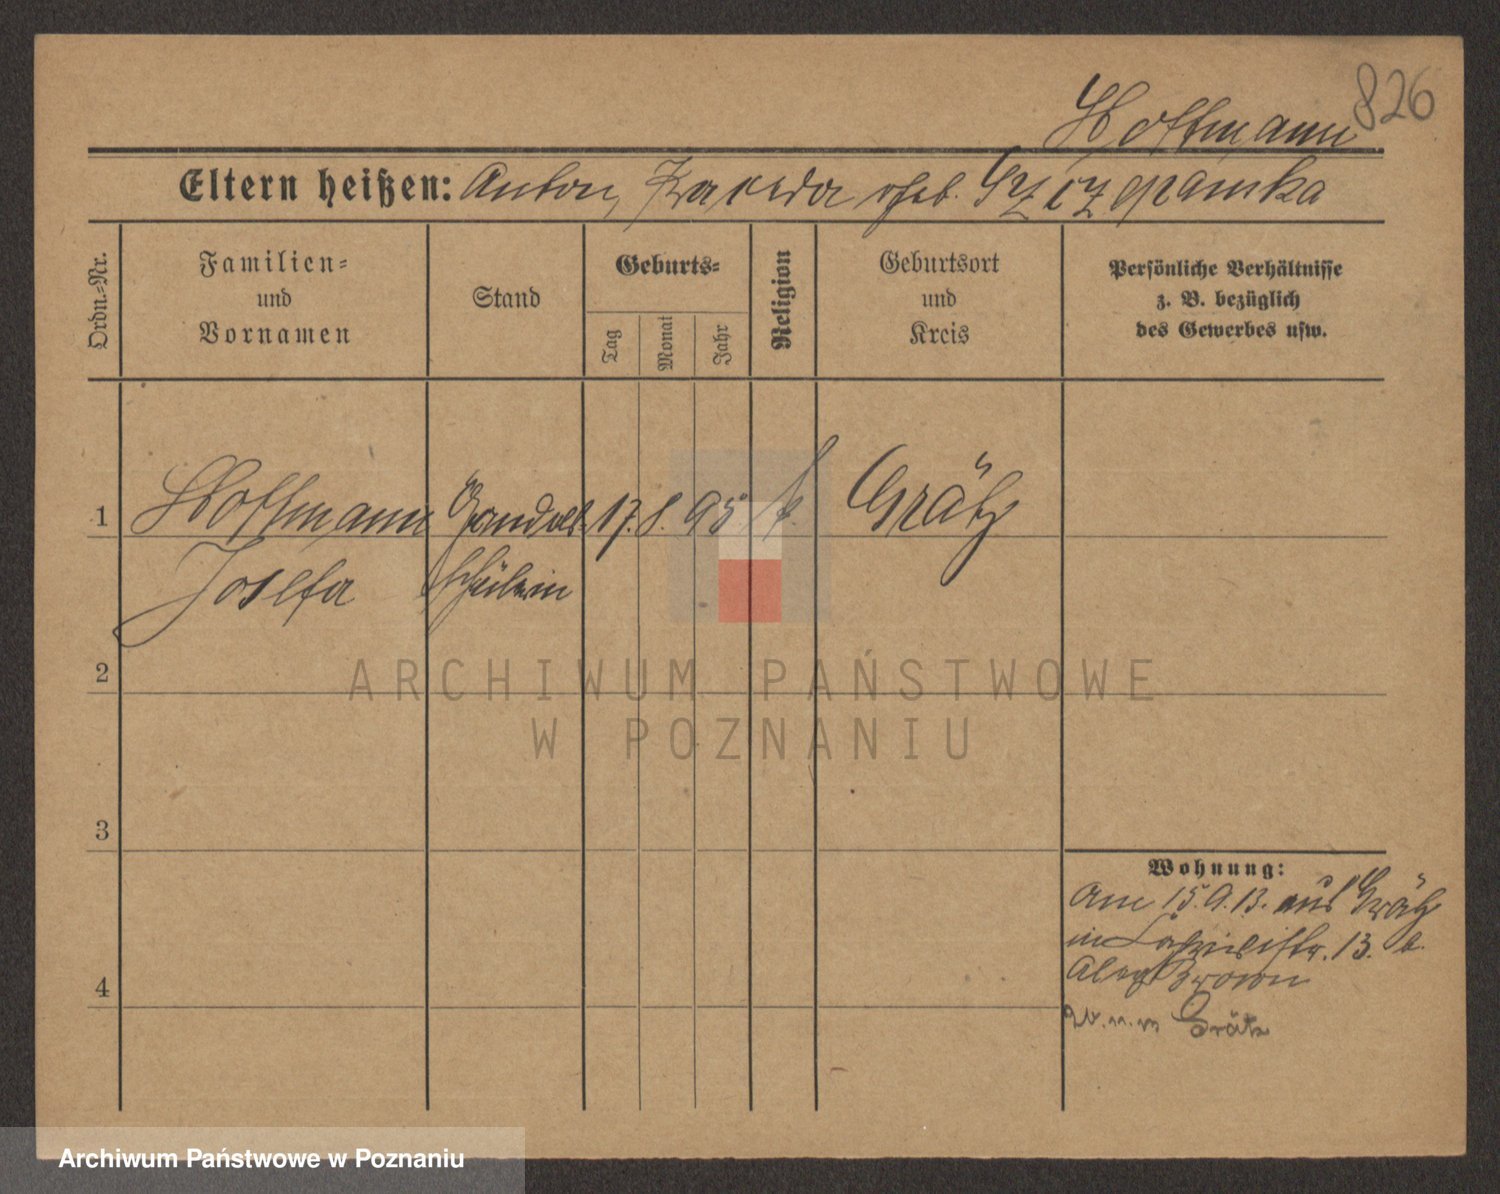 826
Hoffmann
Eltern heißen: Anton, geb. Szczepanska
Ordn.-Nr.
Familien-
und
Vornamen
Stand
Geburts-
Tag
Monat
Jahr
Religion
Geburtsort
und
Kreis
Persönliche Verhältnisse
z. B. bezüglich
des Gewerbes usw.
1 Hoffmann 17. 8. 95 k. Grätz
Josefa schülerin
2
3
4
Wohnung:
Am 15.9.13. aus Grätz
in 13. b.
Grätz
ARCHIWUM PAŃSTWOWE
W POZNANIU
Archiwum Państwowe w Poznaniu